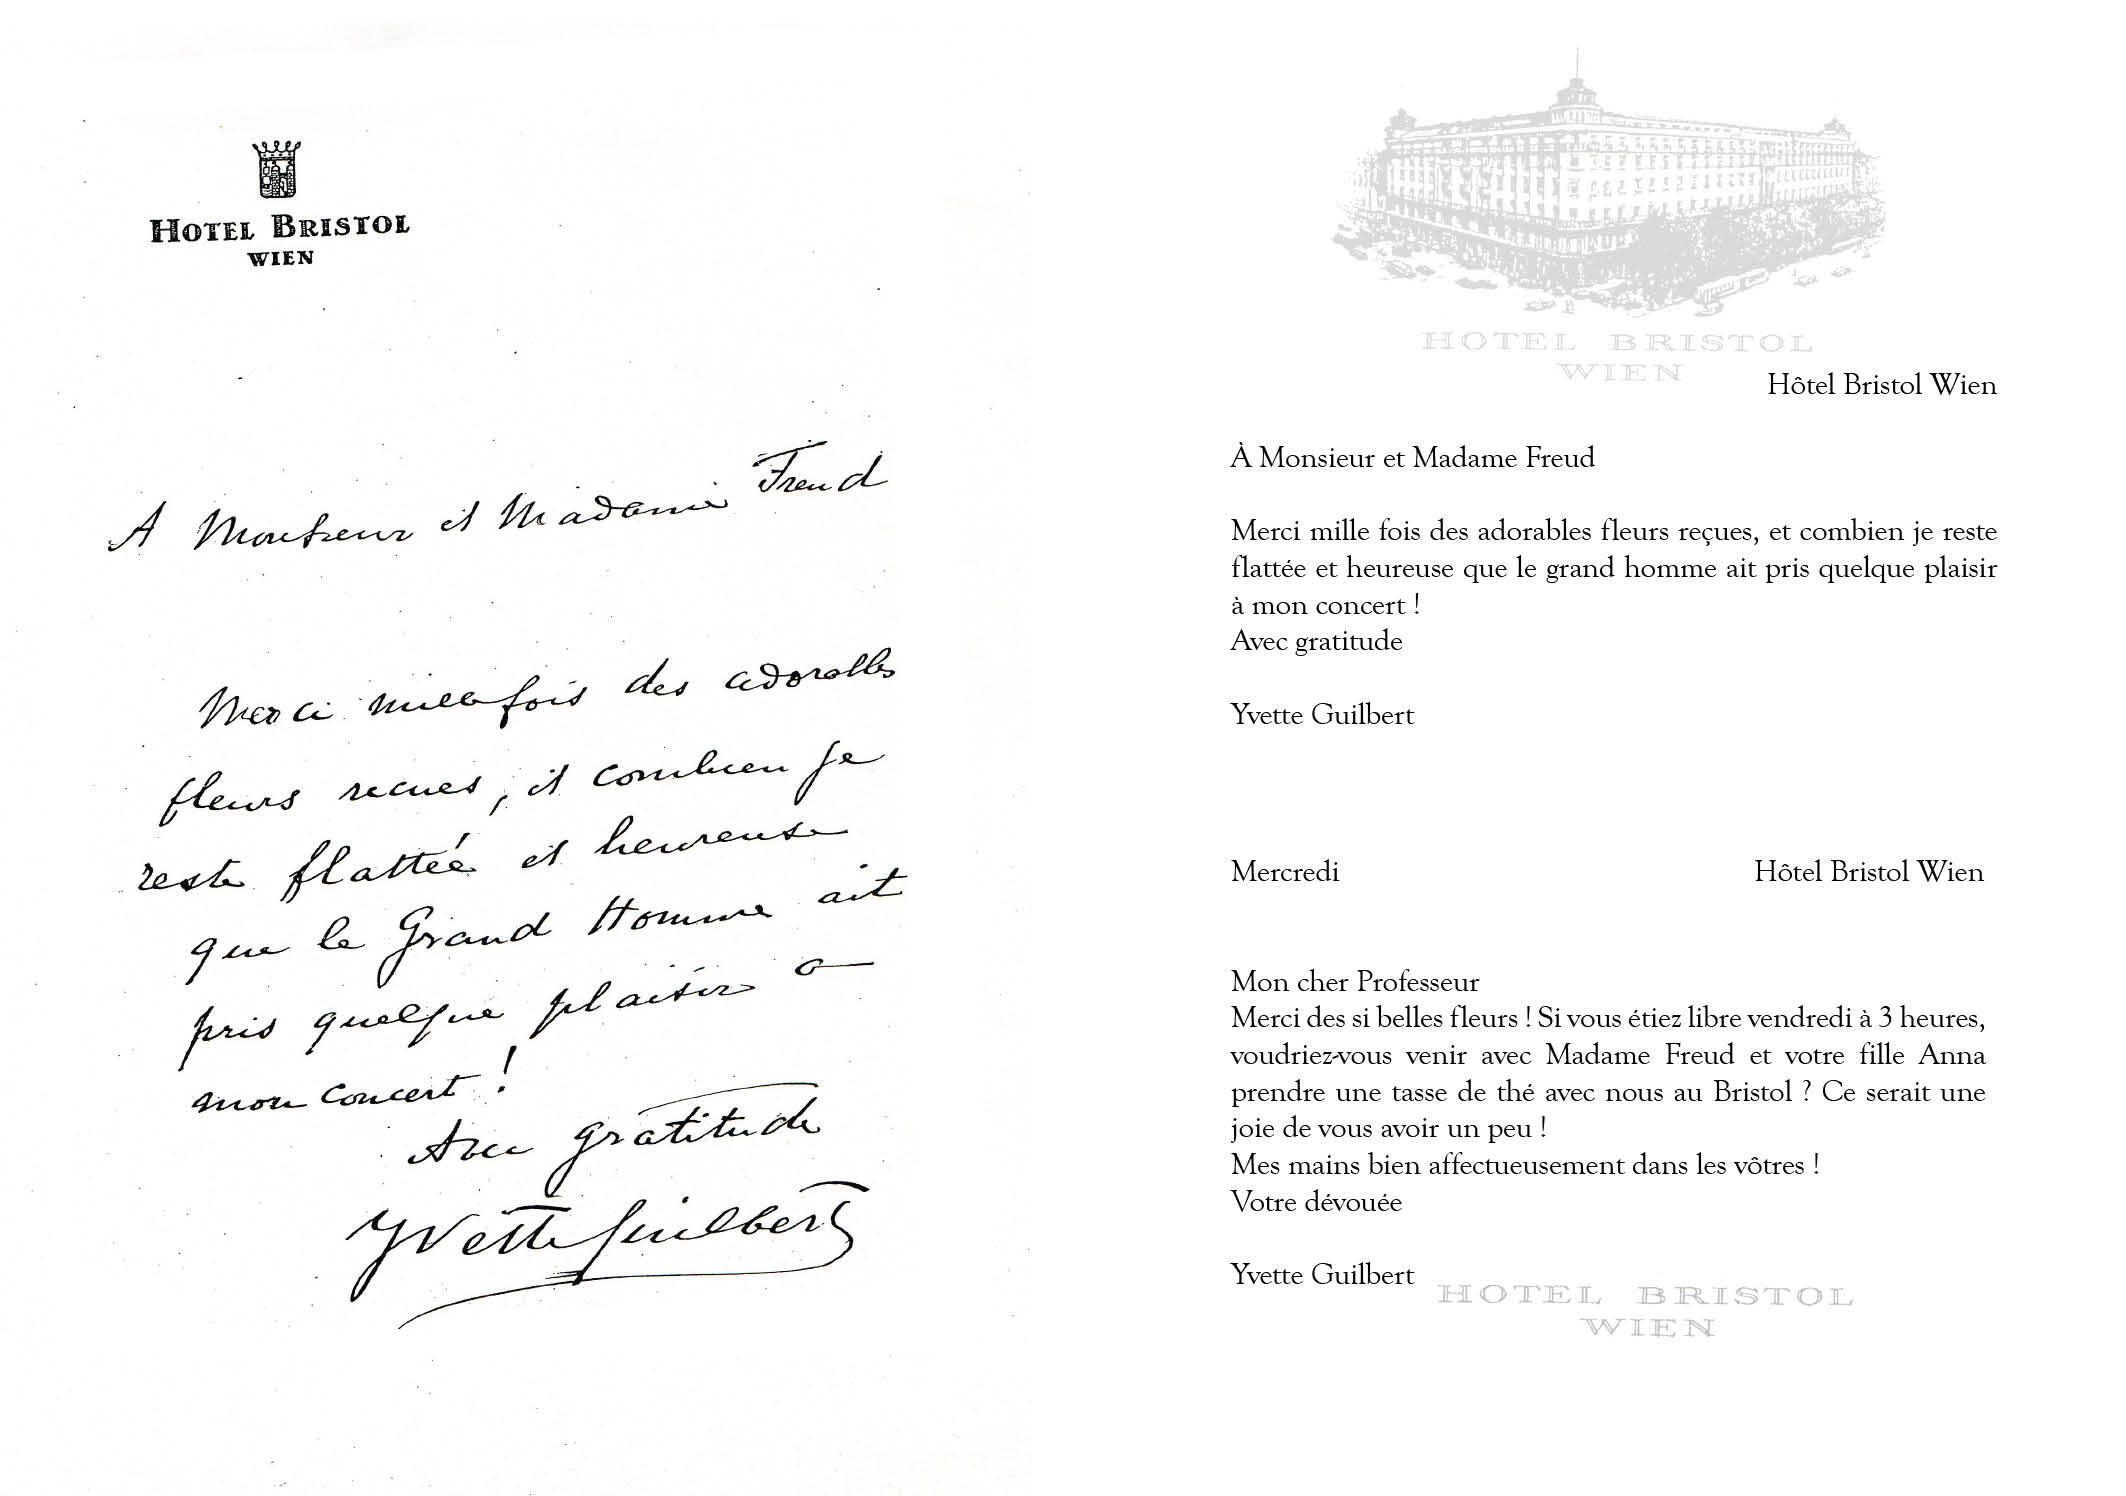 HOTEL BRISTOL
WIEN
A Monsieur et Madame Freud
Merci mille fois des adorables
fleurs recues, et combien je
reste flattée et heureuse
que le Grand Homme ait
pris quelque plaisir a
mon concert !
Avec gratitude
Yvette Guilbert
HOTEL BRISTOL
WIEN
Hôtel Bristol Wien
À Monsieur et Madame Freud
Merci mille fois des adorables fleurs reçues, et combien je reste
flattée et heureuse que le grand homme ait pris quelque plaisir
à mon concert !
Avec gratitude
Yvette Guilbert
Mercredi Hôtel Bristol Wien
Mon cher Professeur
Merci des si belles fleurs ! Si vous étiez libre vendredi à 3 heures,
voudriez-vous venir avec Madame Freud et votre fille Anna
prendre une tasse de thé avec nous au Bristol ? Ce serait une
joie de vous avoir un peu !
Mes mains bien affectueusement dans les vôtres !
Votre dévouée
Yvette Guilbert
HOTEL BRISTOL
WIEN